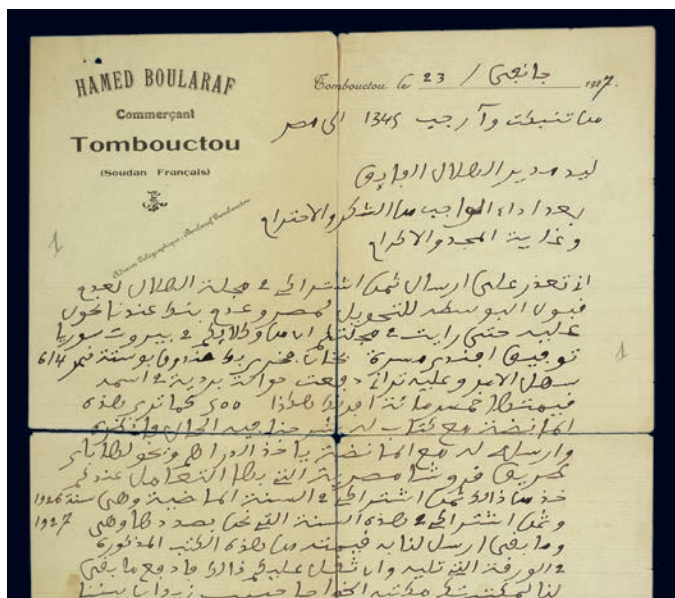 HAMED BOULARAF
Commerçant
Tombouctou
(Soudan Français)
Adresse Télégraphique: Boularaf Tombouctou
Tombouctou le 23 / جانفي 1927.
من تنبكت و رجب 1345 الى مصر
مدير الهلال
بعد اداء الواجب من الشكر والاحترام
وغاية المجد والاكرام
تعذر علي ارسال ثمن اشتراكي في مجلة الهلال لعدم
قبول البوسطه للتحويل لمصر وعدم عندنا
عليه حتى رايت في مجلتكم ان من في بيروت سوريا
توفيق افندي مسرة بوستة نمر 614
الامر وعليه دفعت حوالة بريدية في اسمه
قيمتها خمس مائة افرنك هكذا 500 كما ترى هذه
مع كتاب له
وارسله له مع ياخذ الدراهم
قروشا مصرية التي بها التعامل عندكم
خذ من ذالك ثمن اشتراكي في السنة الماضية وهي سنة 1926
وثمن اشتراكي في هذه السنة التي نحن بصددها وهي 1927
وما بقي ارسل لنا به قيمته من هذه الكتب المذكورة
في الورقة التي تليه وان ثقل عليكم ذالك فادفع ما بقي
لنا
1
1